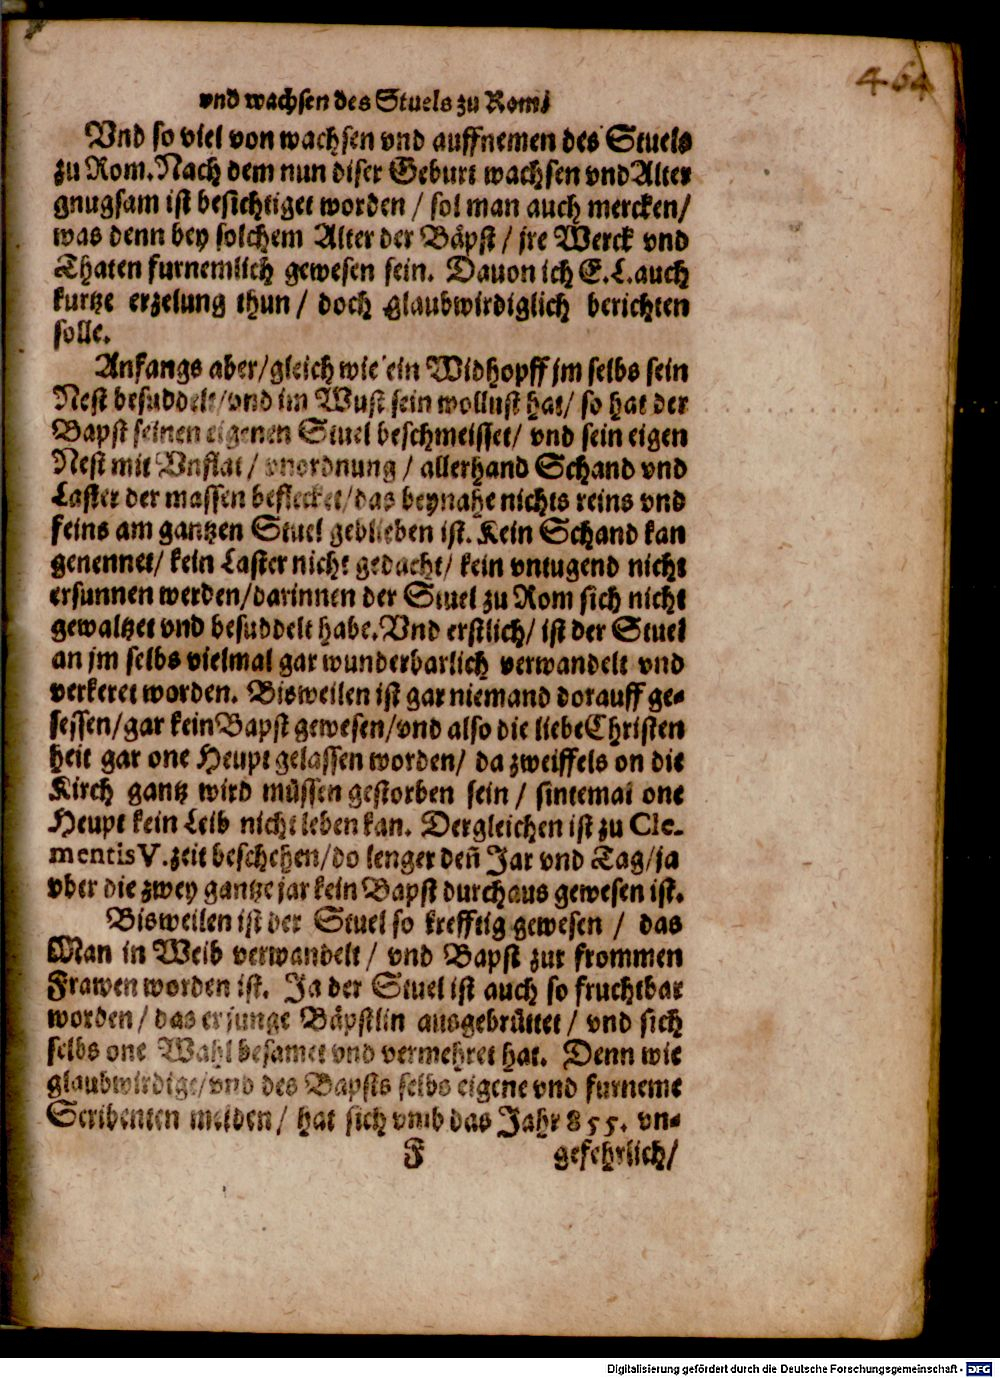 464
vnd wachsen des Stuels zu Rom.
Vnd so viel von wachsen vnd auffnemen des Stuels
zu Rom. Nach dem nun diser Geburt wachsen vnd Alter
gnugsam ist besichtiget worden / sol man auch mercken/
was denn bey solchem Alter der Bäpst / jre Werck vnd
Thaten furnemlich gewesen sein. Dauon ich E. L. auch
kurtze erzelung thun / doch glaubwirdiglich berichten
solle.
Anfangs aber/gleich wie ein Widhopff jm selbs sein
Nest besuddelt/vnd im Wust sein wollust hat/ so hat der
Bapst seinen eigenen Stuel beschmeisset/ vnd sein eigen
Nest mit Vnflat / vnordnung / allerhand Schand vnd
Laster der massen beflecket/das beynahe nichts reins vnd
feins am gantzen Stuel geblieben ist. Kein Schand kan
genennet/ kein Laster nicht gedacht/ kein vntugend nicht
ersunnen werden/darinnen der Stuel zu Rom sich nicht
gewaltzet vnd besuddelt habe. Vnd erstlich/ ist der Stuel
an jm selbs vielmal gar wunderbarlich verwandelt vnd
verkeret worden. Bisweilen ist gar niemand dorauff ge-
sessen/gar kein Bapst gewesen/vnd also die liebe Christen
heit gar one Heupt gelassen worden/ da zweiffels on die
Kirch gantz wird müssen gestorben sein / sintemal one
Heupt kein Leib nicht leben kan. Dergleichen ist zu Cle-
mentis V. zeit beschehen/do lenger deñ Jar vnd Tag/ja
vber die zwey gantze jar kein Bapst durchaus gewesen ist.
Bisweilen ist der Stuel so krefftig gewesen / das
Man in Weib verwandelt / vnd Bapst zur frommen
Frawen worden ist. Ja der Stuel ist auch so fruchtbar
worden / das er junge Bäpstlin ausgebrüttet / vnd sich
selbs one Wahl besamet vnd vermehret hat. Denn wie
glaubwirdige/vnd des Bapsts selbs eigene vnd furneme
Scribenten melden / hat sich vmb das Jahr 855. vn-
F gefehrlich/
Digitalisierung gefördert durch die Deutsche Forschungsgemeinschaft - DFG